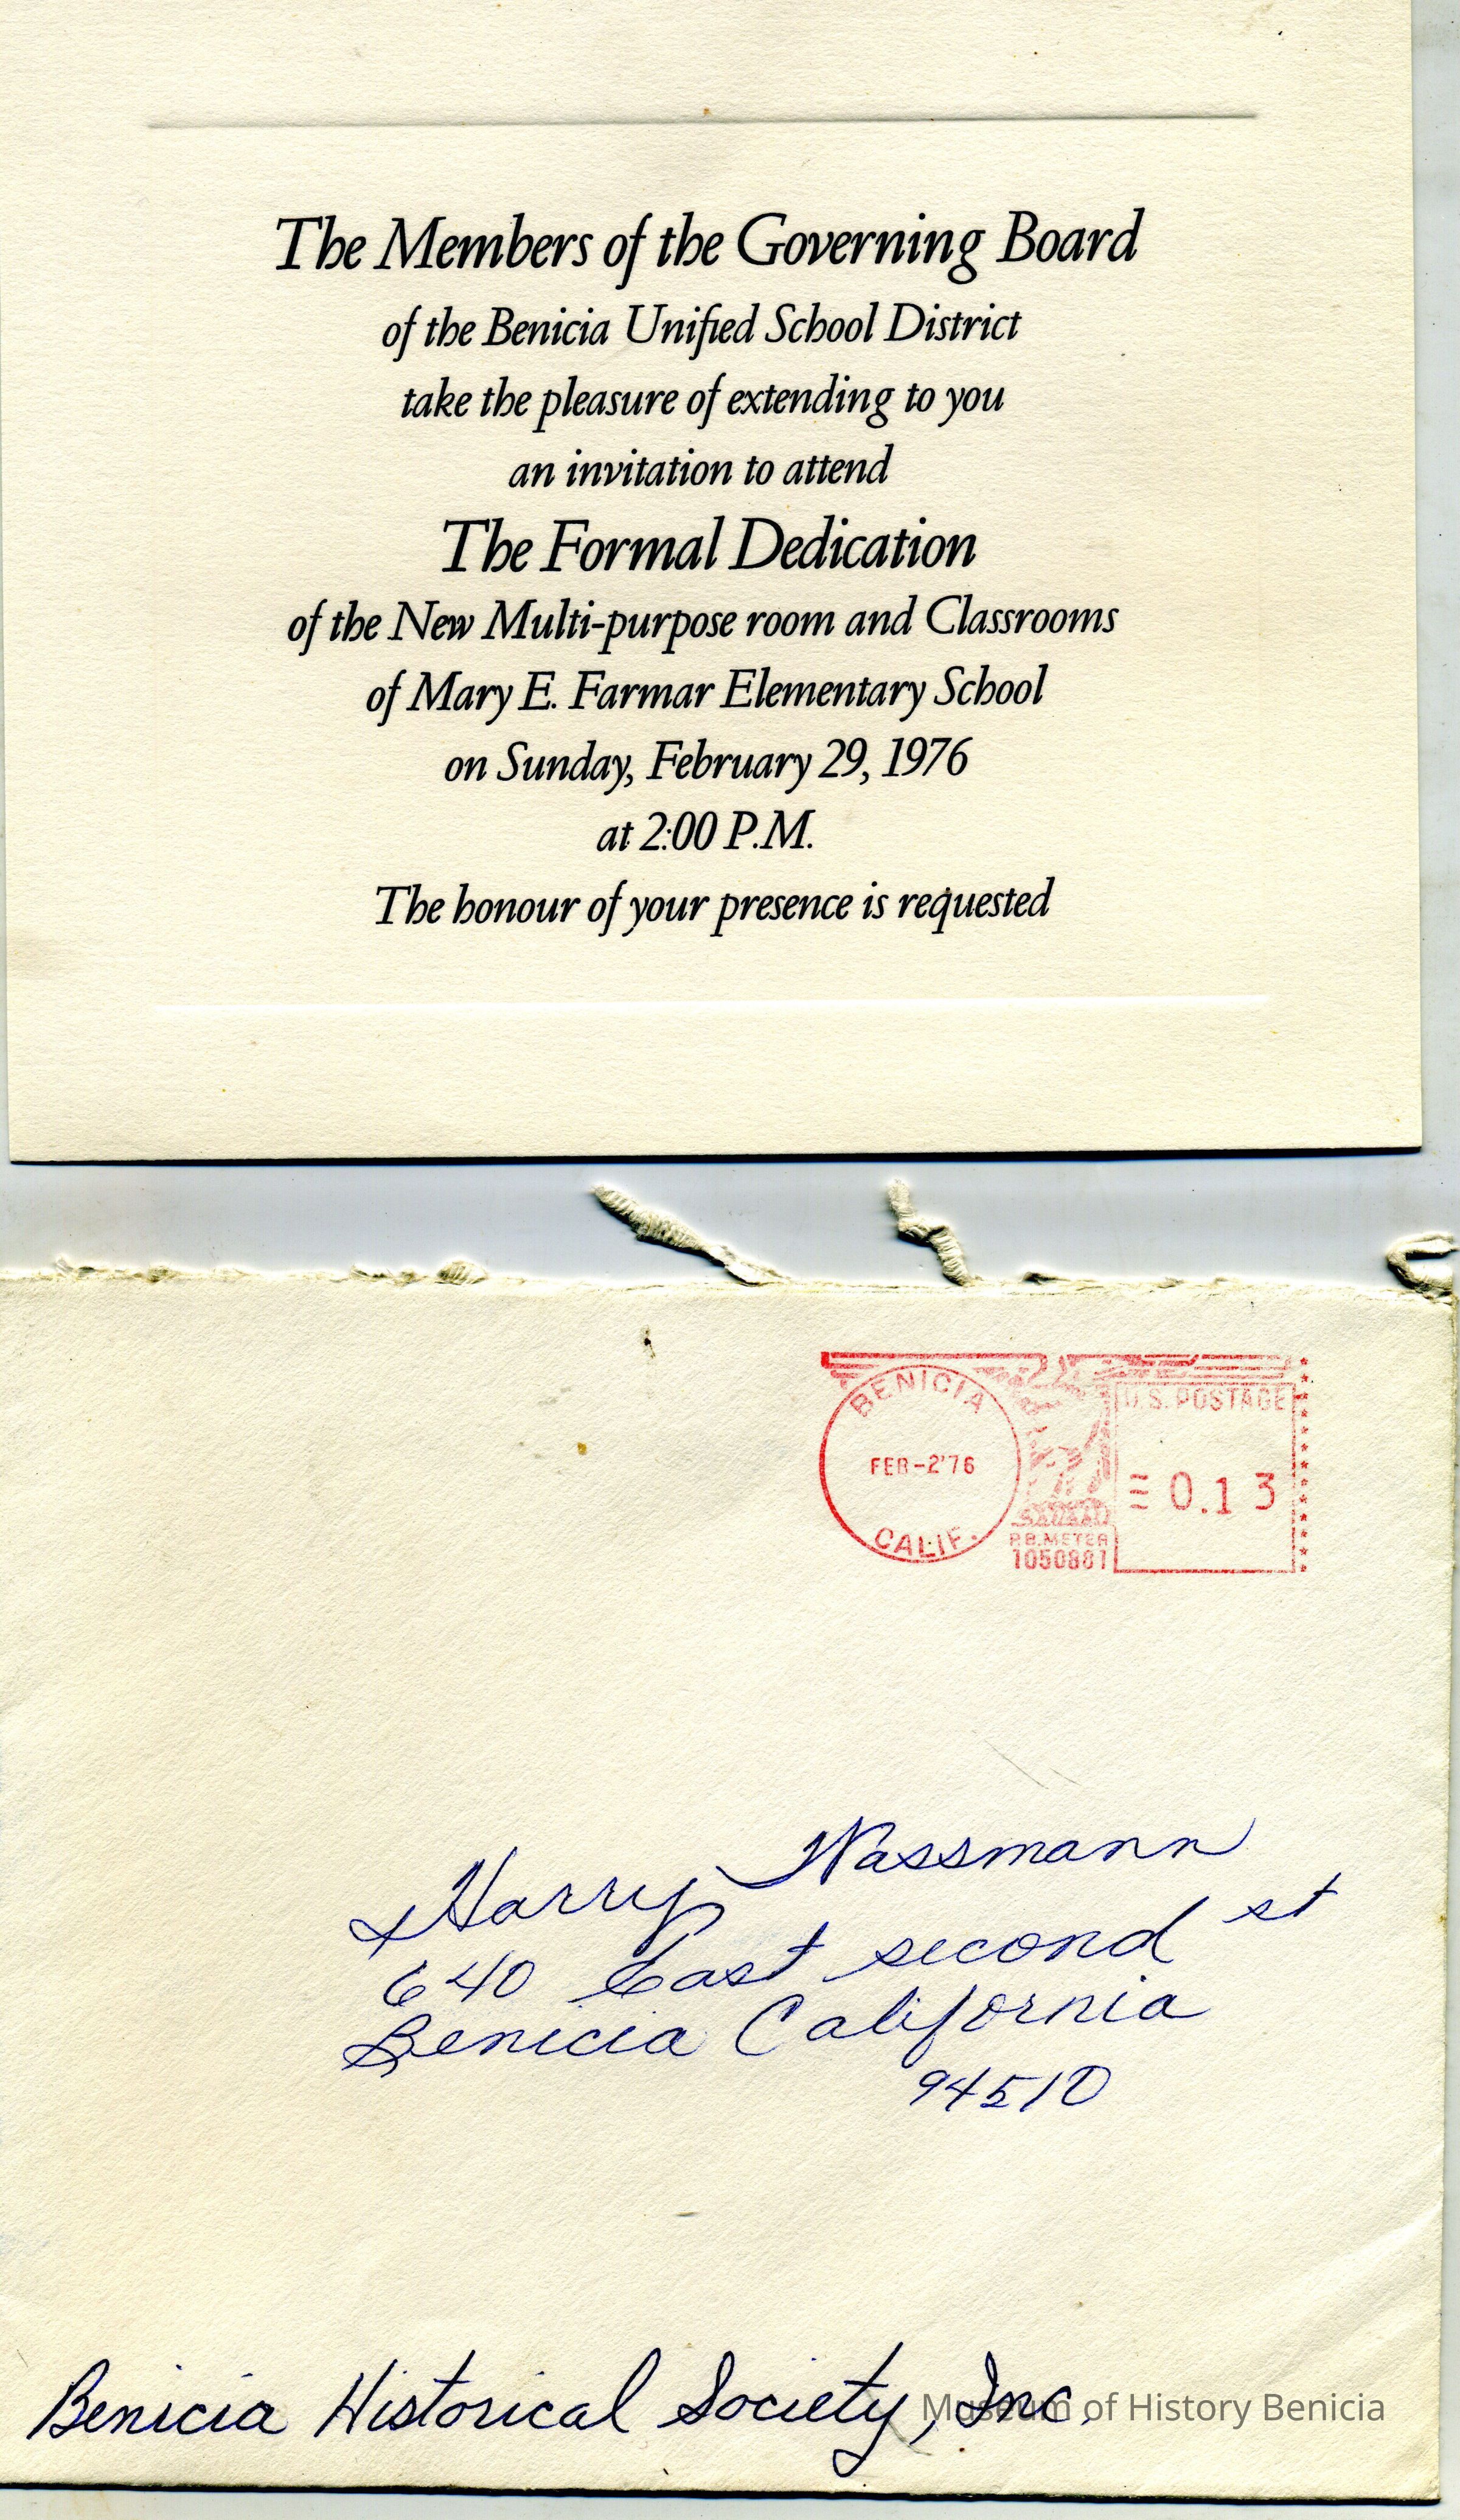 The Members of the Governing Board
of the Benicia Unified School District
take the pleasure of extending to you
an invitation to attend
The Formal Dedication
of the New Multi-purpose room and Classrooms
of Mary E. Farmar Elementary School
on Sunday, February 29, 1976
at 2:00 P.M.
The honour of your presence is requested
BENICIA
FEB-2'76
CALIF.
P.B. METER
1050881
U.S. POSTAGE
0.13
Harry Wassmann
640 East second st
Benicia California
94510
Benicia Historical Society, Inc.
Museum of History Benicia